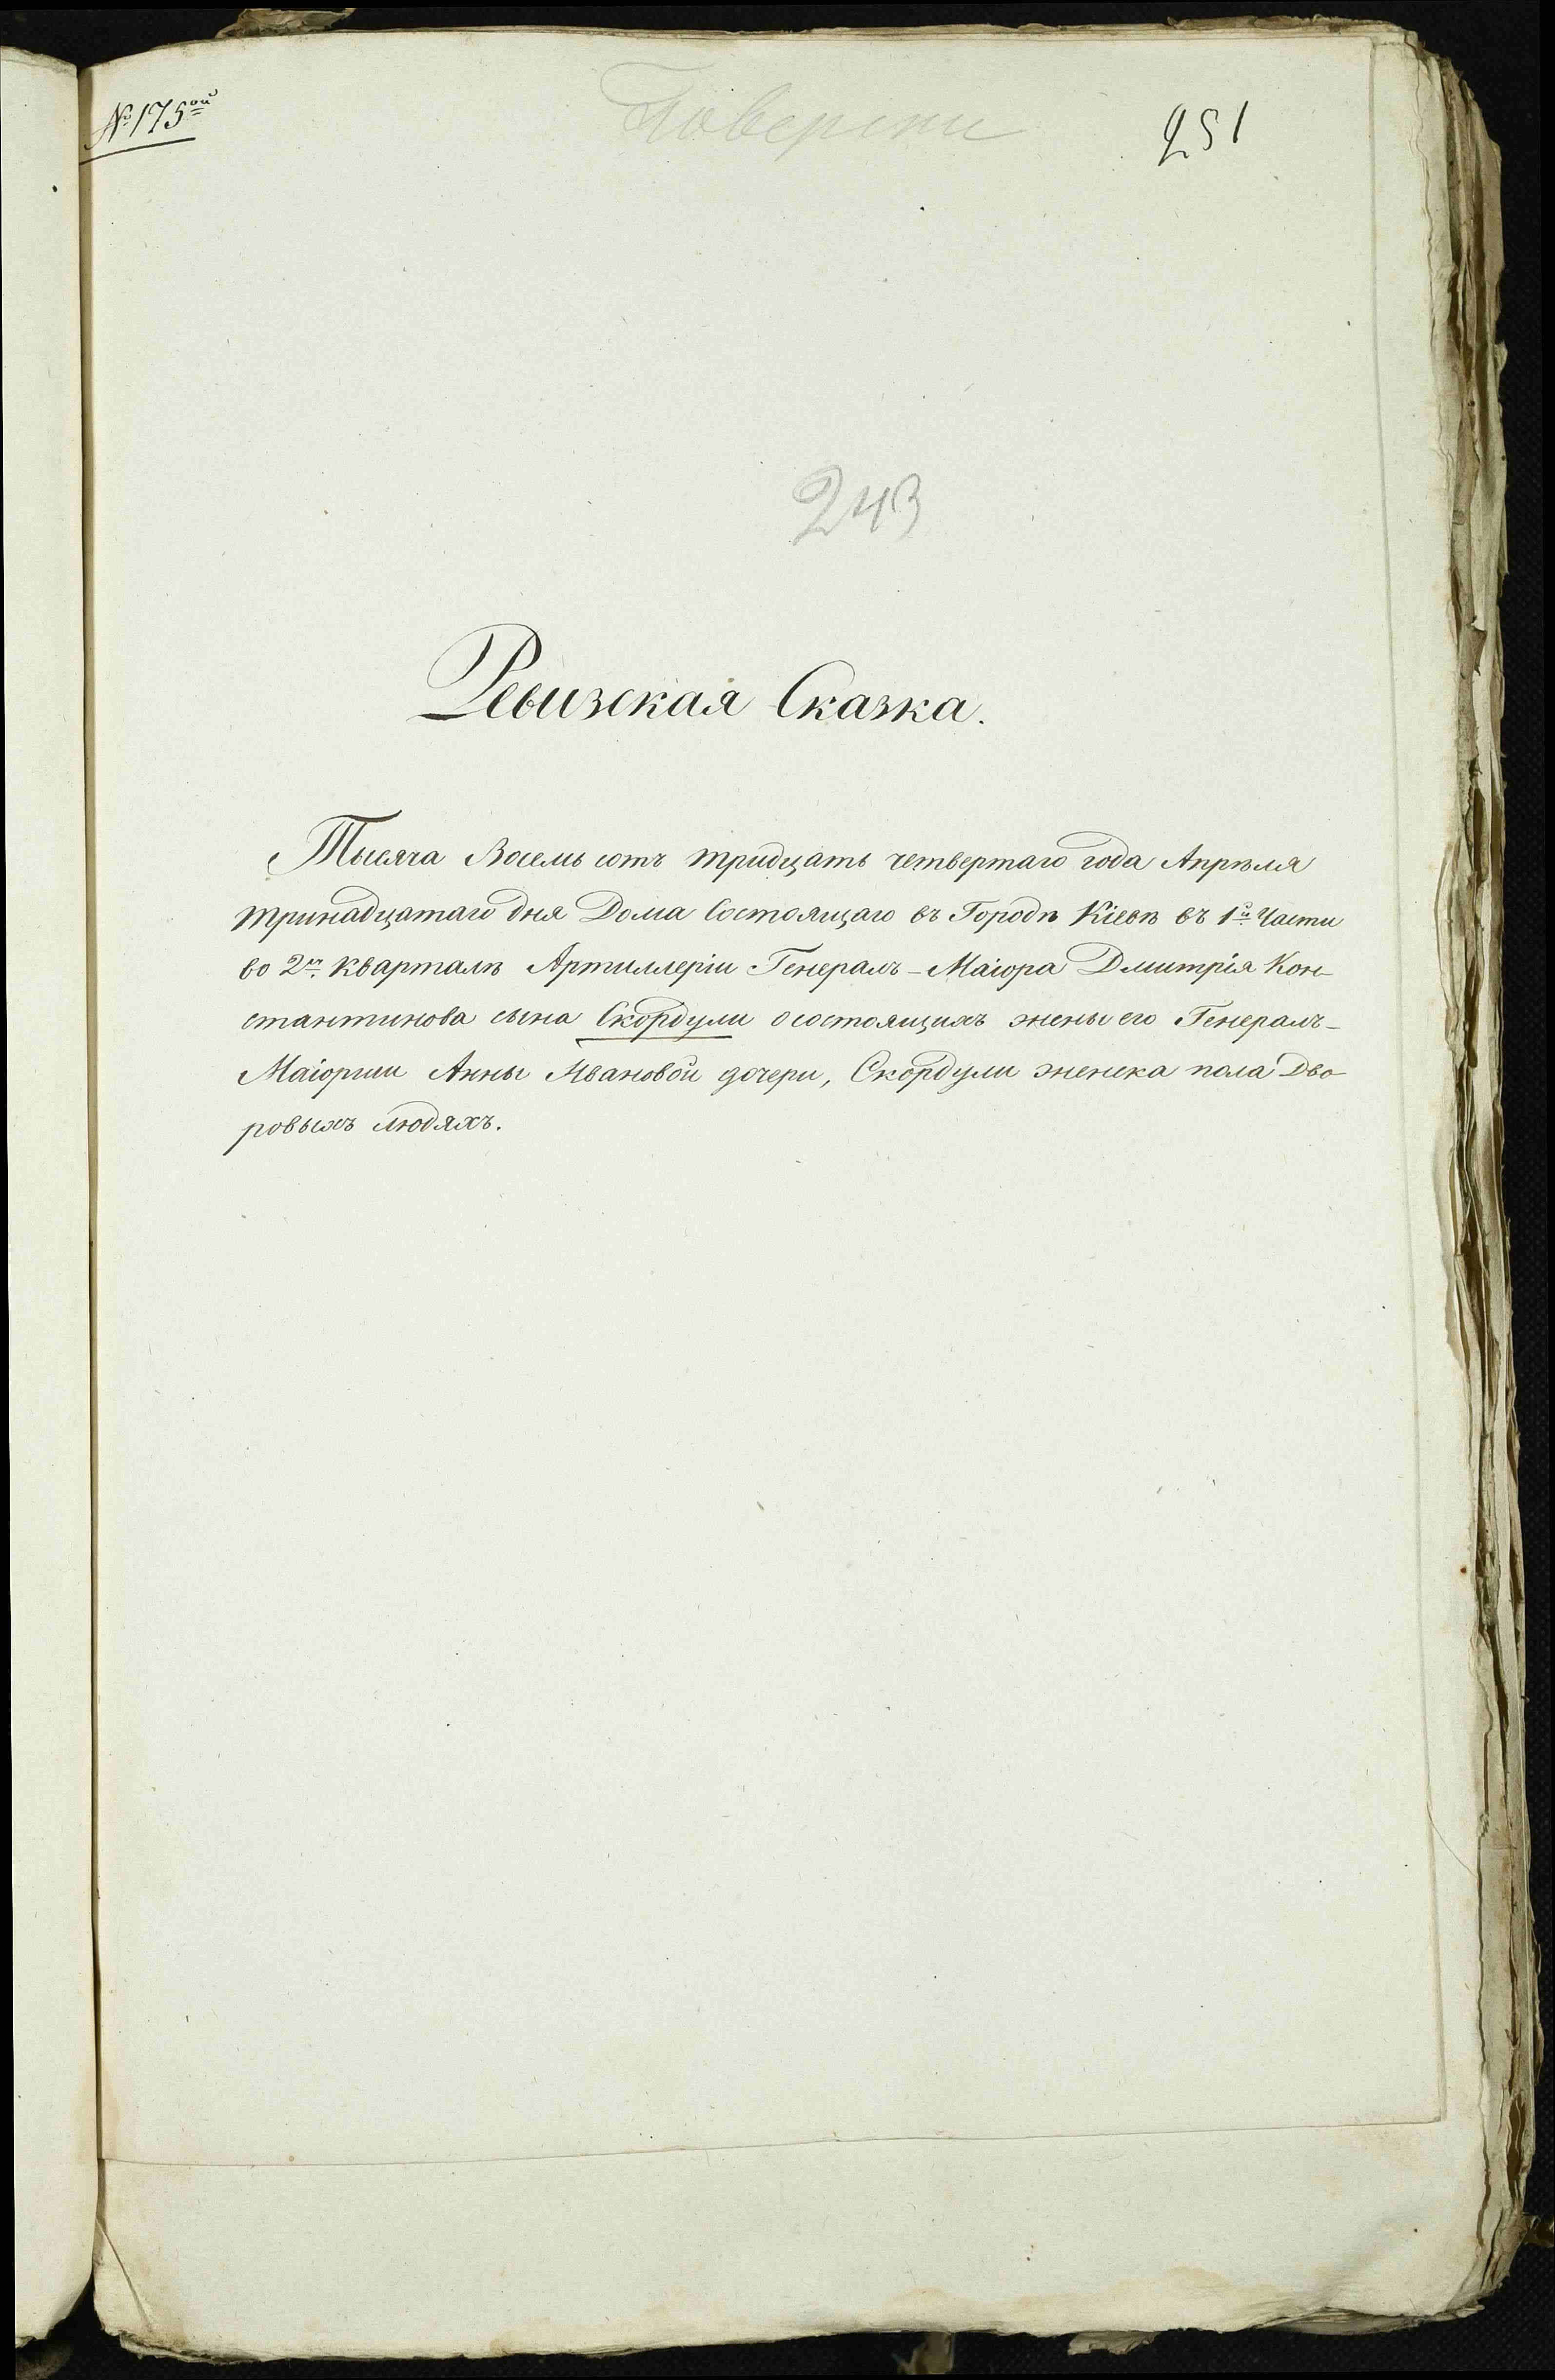 № 175ой
251
243
Ревизская Сказка.
Тысяча Восемь сотъ тридцать четвертаго года Апрѣля
тринадцатаго дня Дома Состоящаго въ Городѣ Кіевѣ въ 1й Части
во 2м кварталѣ Артиллеріи Генералъ-Маіора Дмитрія Кон-
стантинова сына Скордули о состоящихъ жены его Генералъ-
Маіорши Анны Ивановой дочери, Скордули женска пола Дво-
ровыхъ людяхъ.